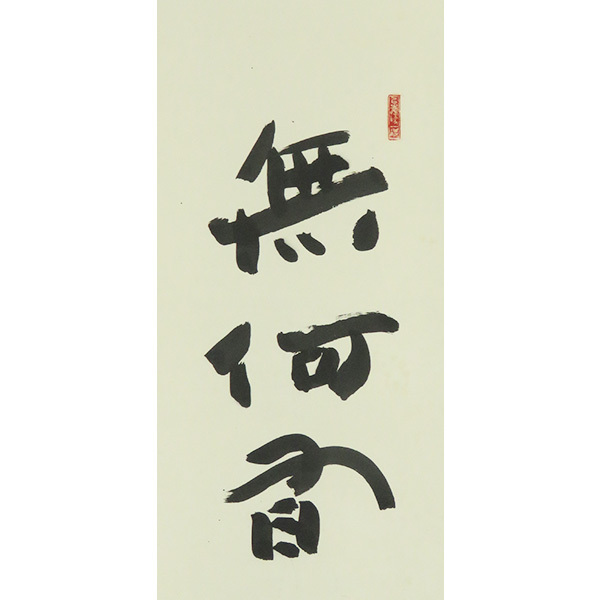 無何有